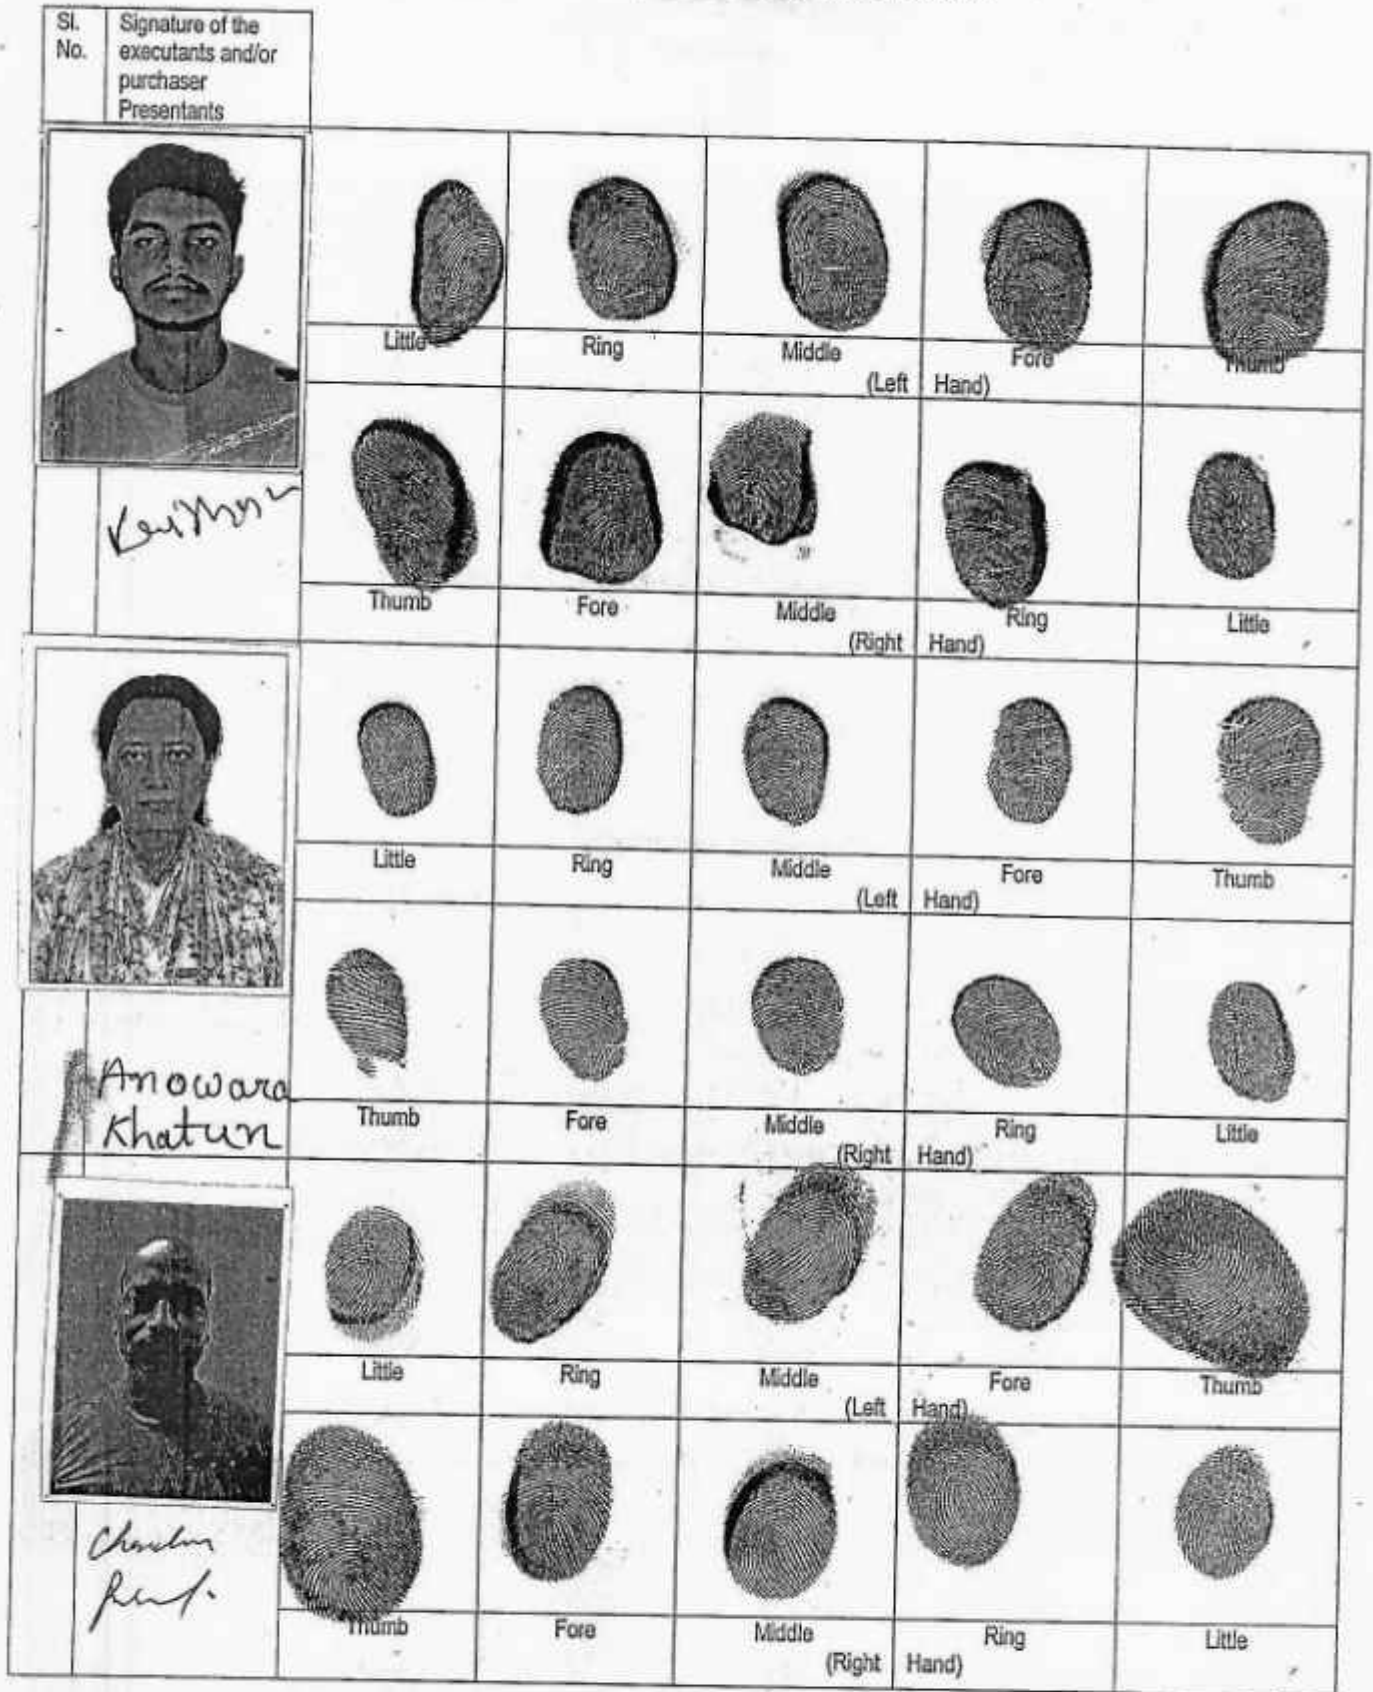 Sl. No.
Signature of the executants and/or purchaser Presentants
Little Ring Middle Fore Thumb
(Left Hand)
Thumb Fore Middle Ring Little
(Right Hand)
Little Ring Middle Fore Thumb
(Left Hand)
Anowara
Khatun
Thumb Fore Middle Ring Little
(Right Hand)
Little Ring Middle Fore Thumb
(Left Hand)
Thumb Fore Middle Ring Little
(Right Hand)